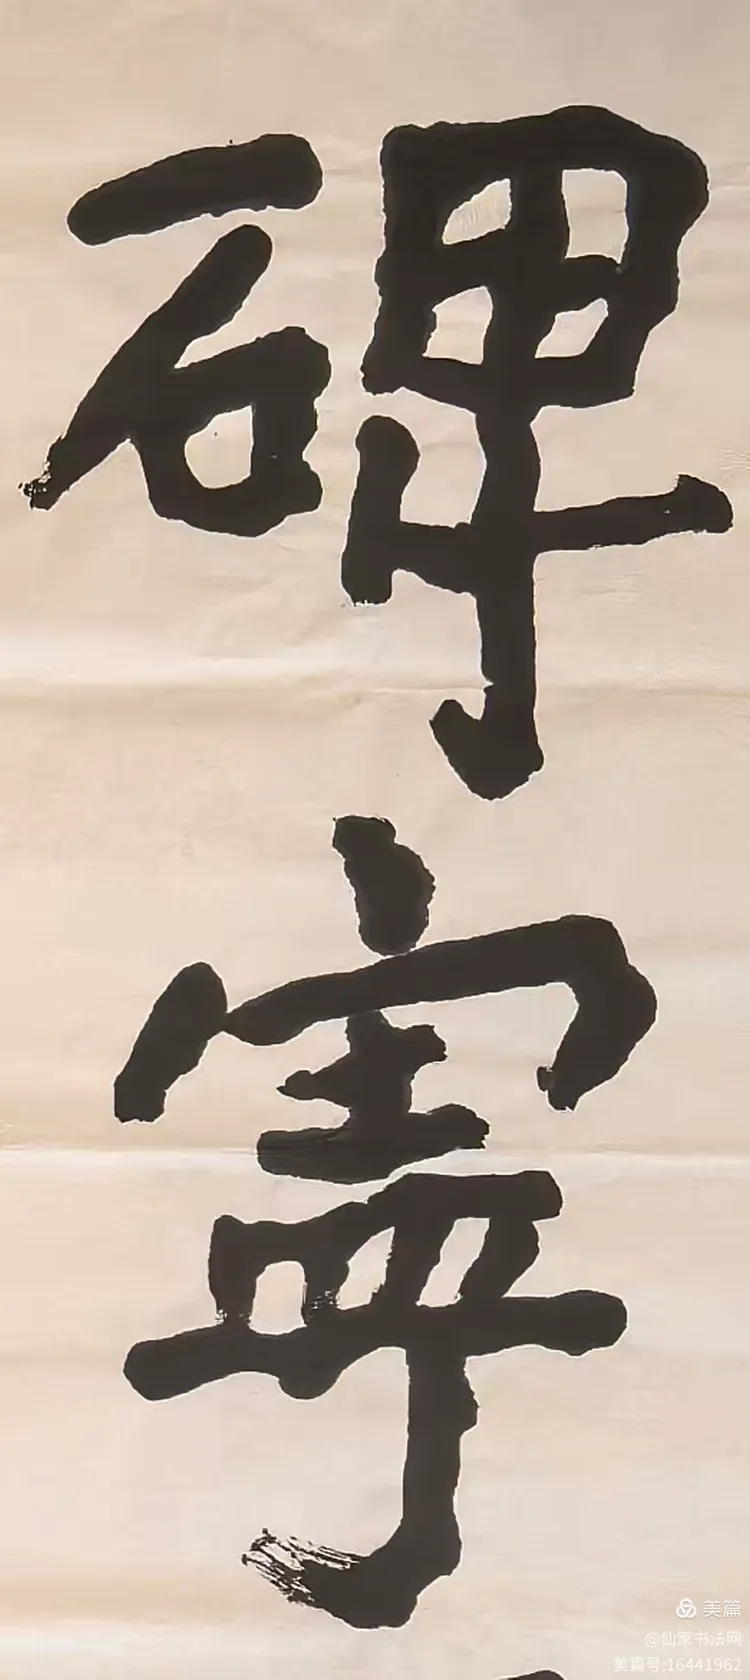 碑
寧
美篇
@仙家书法网
美篇号:16441962